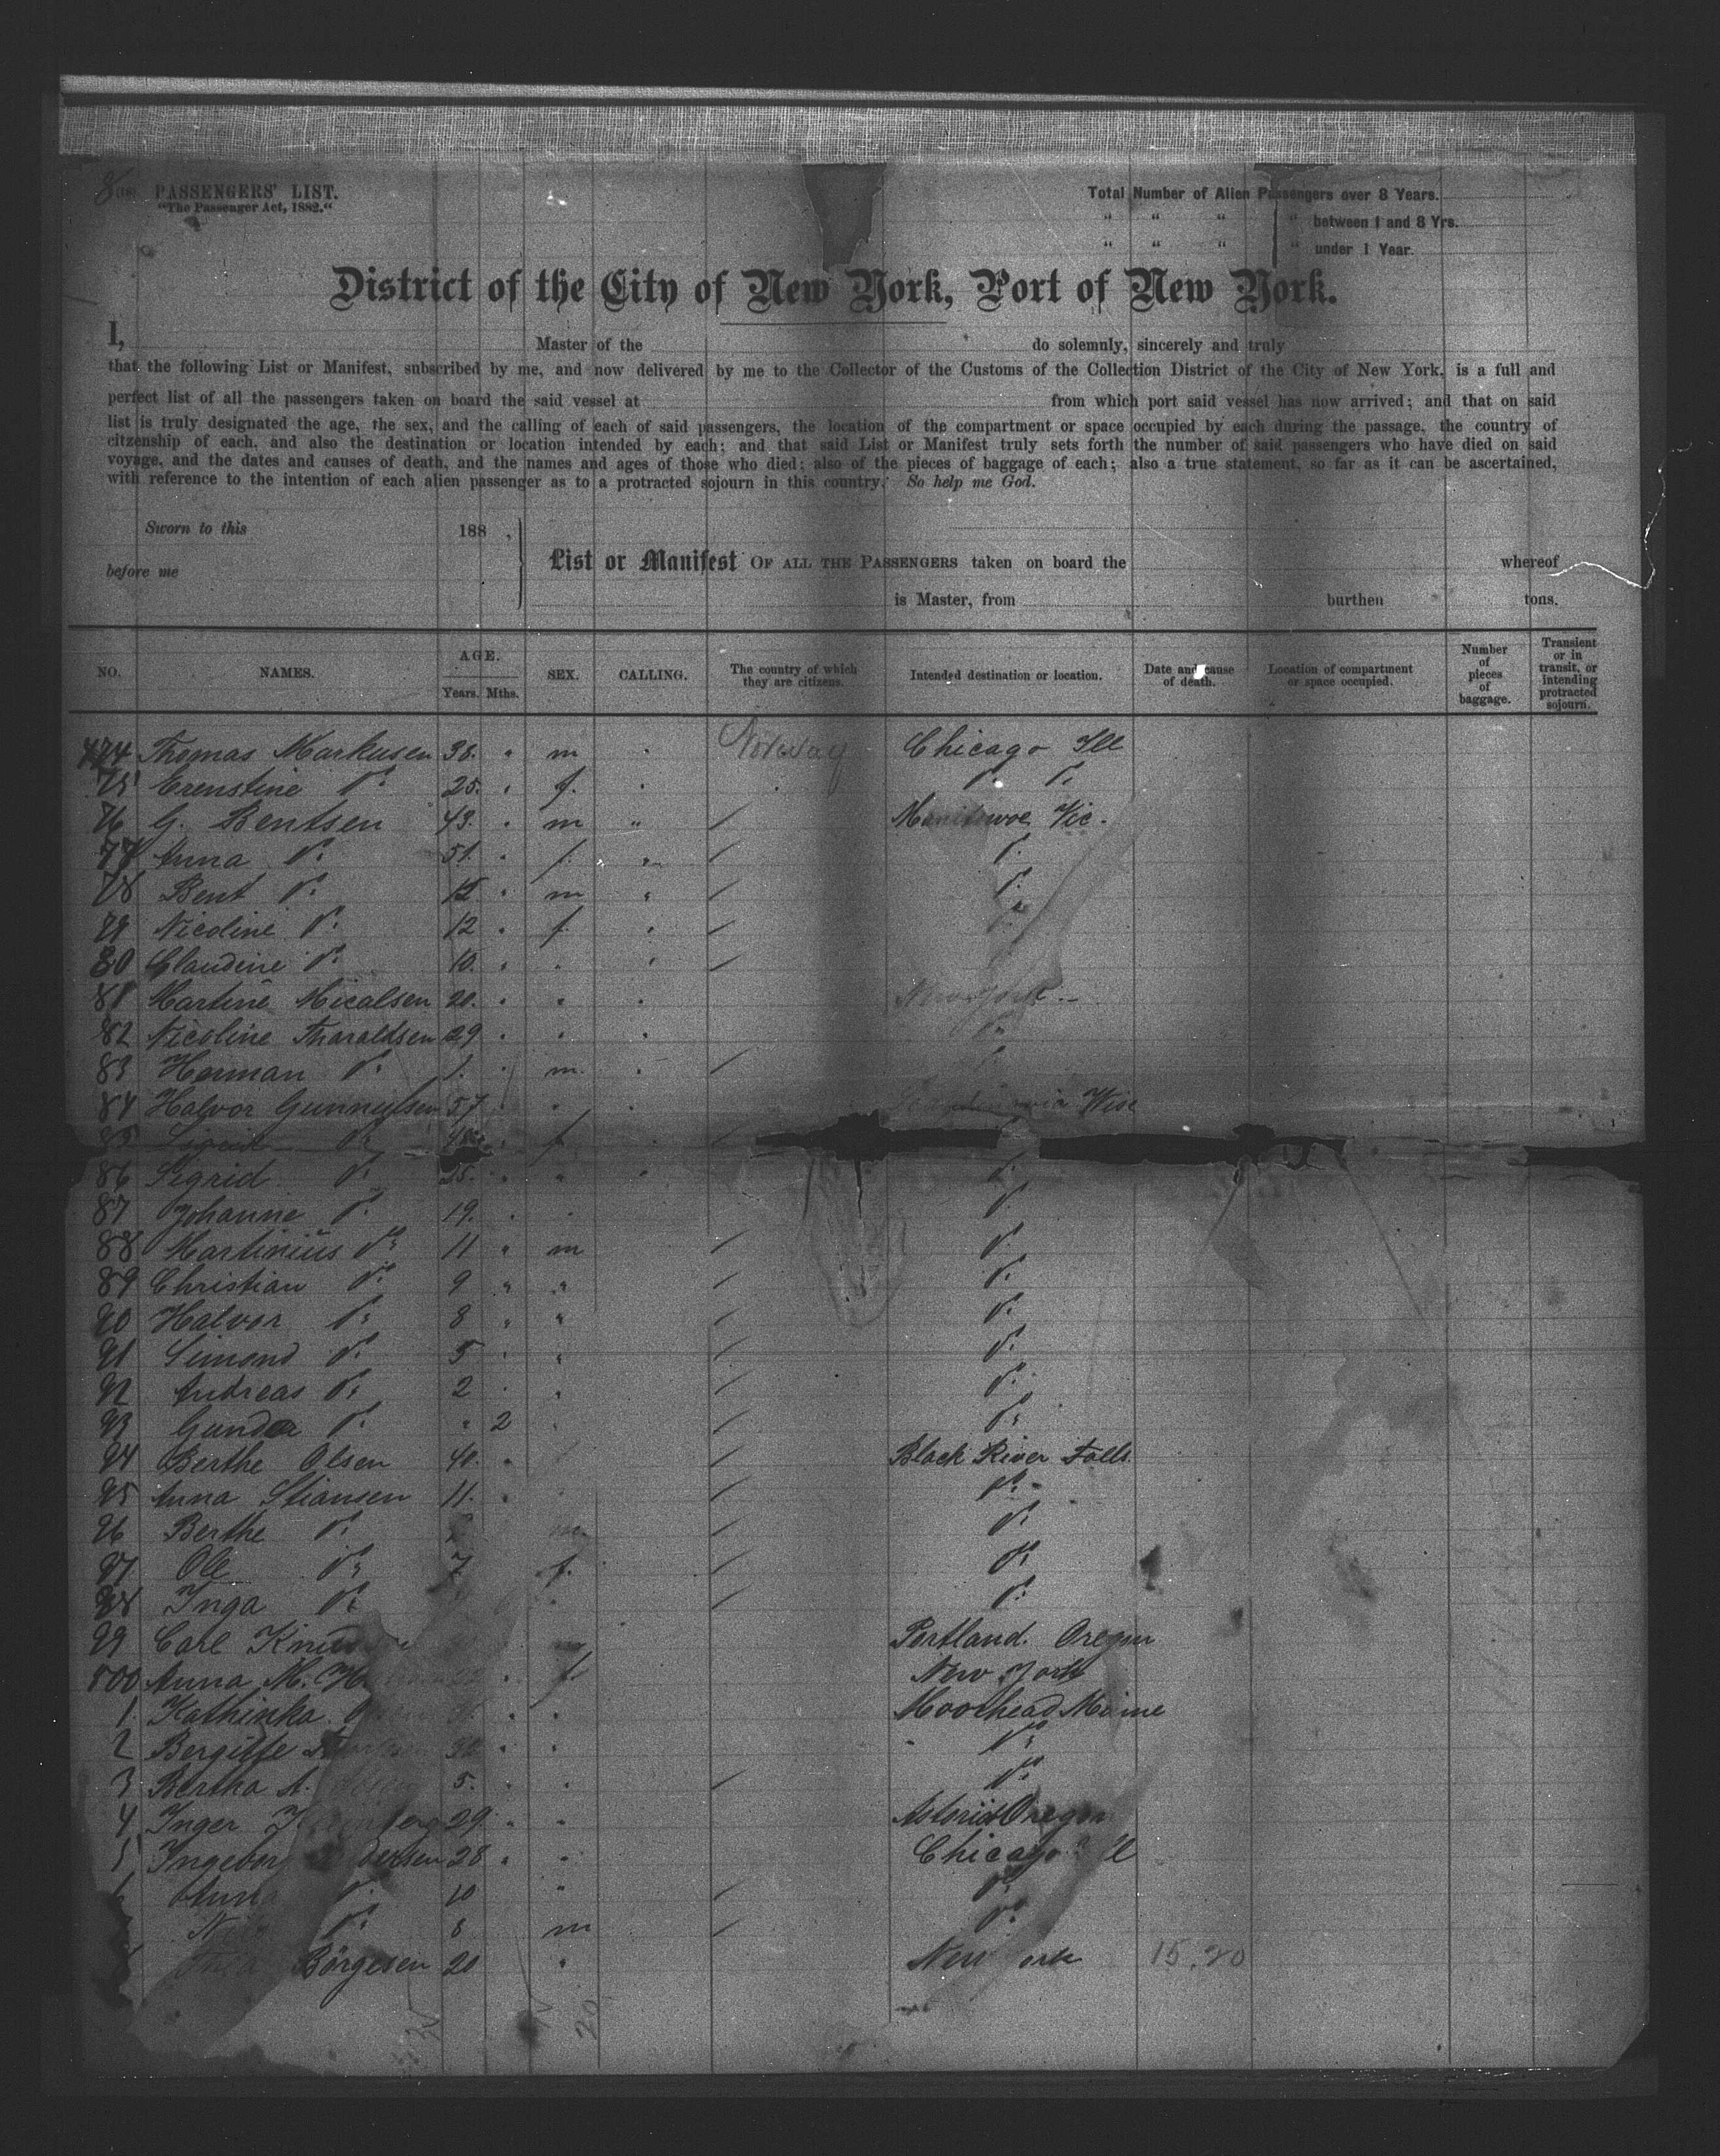 PASSENGERS' LIST.
"The Passenger Act, 1882."
Total Number of Alien Passengers over 8 Years.
" " " " between 1 and 8 Yrs.
" " " " under 1 Year.
District of the City of New York, Port of New York.
I, Master of the do solemnly, sincerely and truly
that the following List or Manifest, subscribed by me, and now delivered by me to the Collector of the Customs of the Collection District of the City of New York, is a full and
perfect list of all the passengers taken on board the said vessel at from which port said vessel has now arrived; and that on said
list is truly designated the age, the sex, and the calling of each of said passengers, the location of the compartment or space occupied by each during the passage, the country of
citzenship of each, and also the destination or location intended by each; and that said List or Manifest truly sets forth the number of said passengers who have died on said
voyage, and the dates and causes of death, and the names and ages of those who died; also of the pieces of baggage of each; also a true statement, so far as it can be ascertained,
with reference to the intention of each alien passenger as to a protracted sojourn in this country. So help me God.
Sworn to this 188 ,
before me
List or Manifest OF ALL THE PASSENGERS taken on board the whereof
is Master, from burthen tons.
NO. NAMES. AGE. Years. Mths. SEX. CALLING. The country of which they are citizens. Intended destination or location. Date and cause of death. Location of compartment or space occupied. Number of pieces of baggage. Transient or in transit, or intending protracted sojourn.
474 Thomas Markusen 38. " m " Norway Chicago Ill
75 Ernestine do 25. " f. " do do
76 G. Bentsen 43. " m " / Manitowoc Wic.
77 Anna do 51. " f. " / do
78 Bent do 15. " m " / do
79 Nicoline do 12 " f. " / do
80 Claudine do 10. " " " / do
81 Martine Micalsen 20. " " " New York
82 Nicoline Tharaldsen 29 " " " do
83 Herman do 1. " m. " / do
84 Halvor Gunnulsen 57 " " Wisc
85 do f
86 Sigrid do 25. " " " do
87 Johanne do 19. " " do
88 Martinius do 11 " m / do
89 Christian do 9 " " / do
90 Halvor do 8 " " / do
91 Simond do 5 " " / do
92 Andreas do 2 " " / do
93 Gunder do " 2 " / do
94 Berthe Olsen 40. " / Black River Falls
95 Anna Stiansen 11. " / do
96 Berthe do m / do
97 Ole do 7 f. / do
98 Inga do / do
99 Carl m Portland. Oregon
500 Anna M. " f New York
1 Kathinka " " Moorhead Maine
2 Bergitte " " do
3 Bertha A. 5. " " / do
4 Inger 29. " " Astoria Oregon
5 Ingeborg 28 " " Chicago Ill
6 Anna do 10 " / do
do 8 m / do
Börgesen 20 " New York 15.20
20